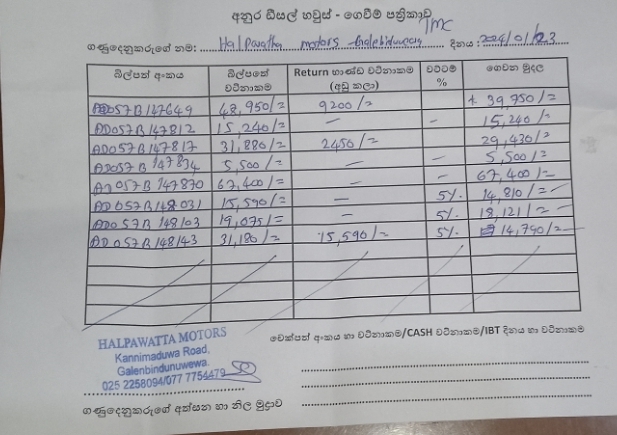 අනුර ඩීසල් හවුස් - ගෙවීම් පත්‍රිකාව
TMC
ගණුදෙනුකරුගේ නම: Halpawatha motors දිනය : 2024/01/23
බිල්පත් අංකය බිල්පතේ වටිනාකම Return භාණ්ඩ වටිනාකම (අඩු කලා) වට්ටම් % ගෙවන මුදල
AD057B147649 48,950/= 9200/= 39,750/=
AD057B147812 15,240/= – – 15,240/=
AD057B147817 31,880/= 2450/= 29,430/=
AD057B147834 5,500/= – – 5,500/=
AD057B147870 67,400/= – – 67,400/=
AD057B148031 15,590/= – 5%. 14,810/=
AD057B148103 19,075/= – 5%. 18,121/=
AD057B148143 31,180/= 15,590/= 5%. 14,790/=
HALPAWATTA MOTORS
Kannimaduwa Road,
Galenbindunuwewa.
025 2258094/077 7754479
චෙක්පත් අංකය හා වටිනාකම/CASH වටිනාකම/IBT දිනය හා වටිනාකම
ගණුදෙනුකරුගේ අත්සන හා නිල මුද්‍රාව